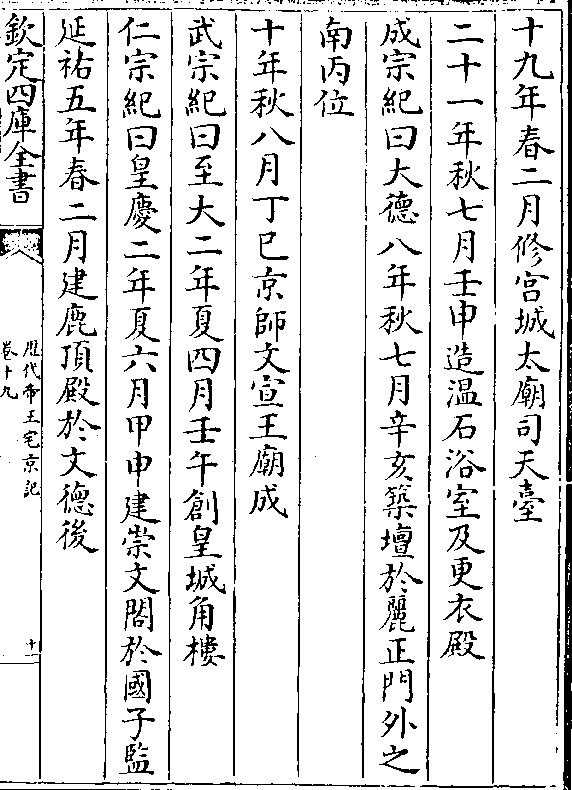 十九年春二月修宫城太廟司天臺
二十一年秋七月壬申造温石浴室及更衣殿
成宗紀曰大德八年秋七月辛亥築壇於麗正門外之
南丙位
十年秋八月丁巳京師文宣王廟成
武宗紀曰至大二年夏四月壬午創皇城角樓
仁宗紀曰皇慶二年夏六月甲申建崇文閣於國子監
延祐五年春二月建鹿頂殿於文德後
欽定四庫全書
歷代帝王宅京記
卷十九
十一